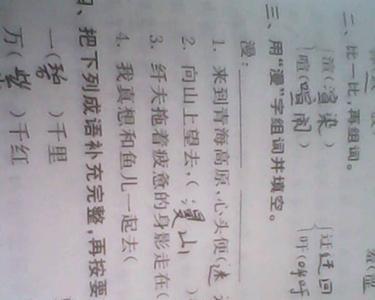 二、比一比,再组词。
渲(渲染) 迂(迂回
喧(喧闹) 吁(呼吁
三、用“漫”字组词并填空。
漫:
1. 来到青海高原,心头便(
2. 向山上望去,(漫山
3. 纤夫拖着疲惫的身影走在(
4. 我真想和鱼儿一起去(
四、把下列成语补充完整,再按要
一( )千里
万(紫)千红